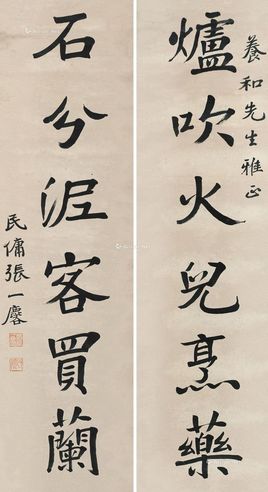 養和先生雅正
爐吹火兒烹藥
石分泥客買蘭
民傭張一麐